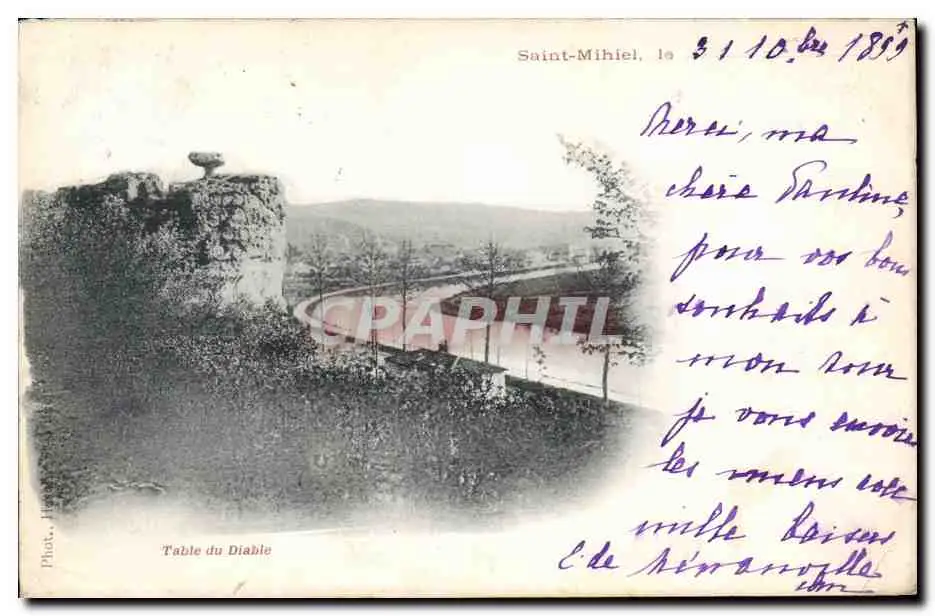 Saint-Mihiel, le 31 10.bre 1899
Merci, ma
chère Pauline,
pour vos bons
souhaits à
mon tour
je vous envoie
les miens avec
mille baisers
E. de
CPAPHIL
Table du Diable
Phot.